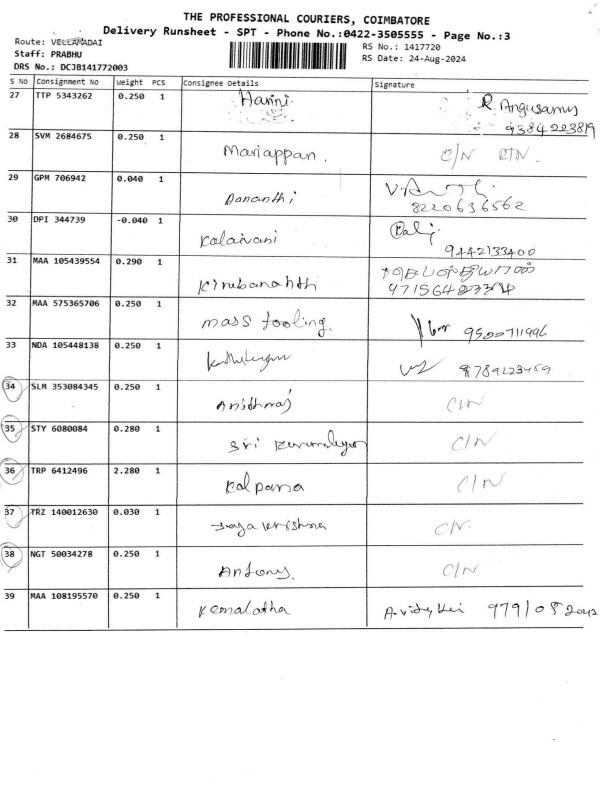 THE PROFESSIONAL COURIERS, COIMBATORE
Delivery Runsheet - SPT - Phone No.:0422-3505555 - Page No.:3
Route: VELLAMADAI
RS No.: 1417720
Staff: PRABHU
RS Date: 24-Aug-2024
DRS No.: DCJB141772003
S NO Consignment No Weight PCS Consignee Details Signature
27 TTP 5343262 0.250 1 Harini R. Angusamy
9384223819
28 SVM 2684675 0.250 1 Mariappan. C/N RTN.
29 GPM 706942 0.040 1
8220636562
30 DPI 344739 -0.040 1 Kalaivani
9442133400
31 MAA 105439554 0.290 1 Kirubananth
32 MAA 575365706 0.250 1 mass tooling. 9500711996
33 NDA 105448138 0.250 1
34 SLM 353084345 0.250 1 C/N
35 STY 6080084 0.280 1 Sri C/N
36 TRP 6412496 2.280 1 Kalpana C/N
37 TRZ 140012630 0.030 1 Jaya Krishna C/N.
38 NGT 50034278 0.250 1 Antony. C/N
39 MAA 108195570 0.250 1 Kemalatha